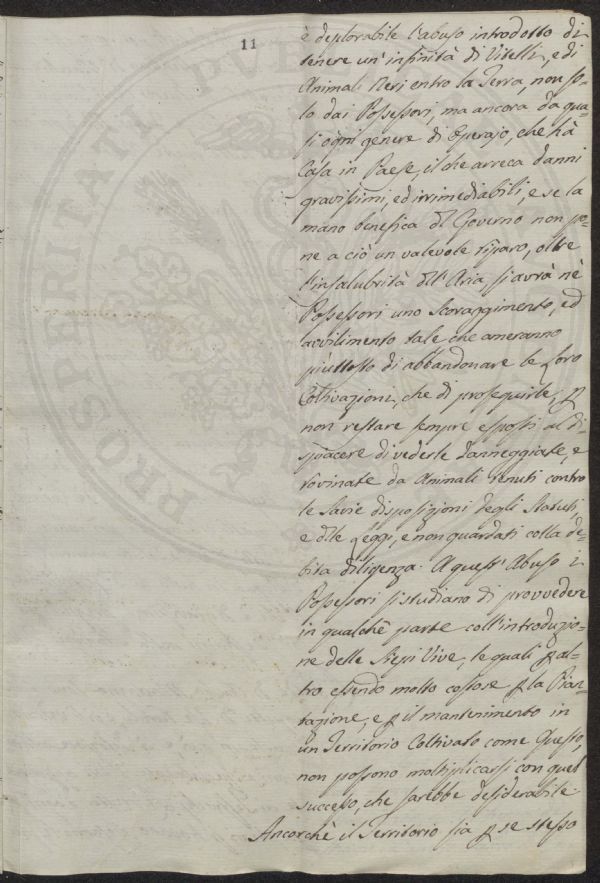 11
è deplorabile l'abuso introdotto di
tenere un' infinità di Vitelli, e di
Animali Neri entro la Terra, non so-
lo dai Possessori, ma ancora da qua-
si ogni genere di Operajo, che hà
Casa in Paese, il che arreca danni
gravissimi, ed irrimediabili, e se la
mano benefica dl Governo non po-
ne a ciò un valevole riparo, oltre
l'insalubrità dll'Aria si avrà nè
Possessori uno scoraggimento, ed
avvilimento tale che ameranno
piùttosto di abbandonare le loro
Coltivazioni, che di proseguirle, p
non restare sempre esposti al di-
spiacere di vederle danneggiate, e
rovinate da Animali tenuti contro
le savie disposizioni degli Statuti,
e dlle Leggi, e non guardati colla de-
bita diligenza. A quest' Abuso i
Possessori si studiano di provvedere
in qualchè parte coll'introduzio-
ne delle Siepi Vive, le quali p al-
tro essendo molto costose p la Pian-
tagione, e p il mantenimento in
un Territorio Coltivato come Questo,
non possono moltiplicarsi con quel
successo, che sarebbe desiderabile.
Ancorchè il Territorio sia p se stesso